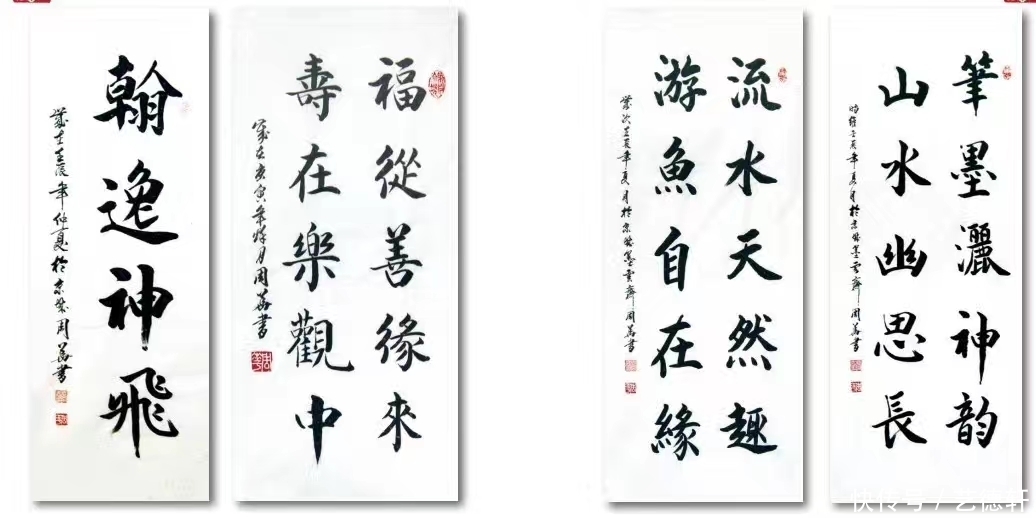 翰逸神飛
歲在壬辰年仲夏於京城周萬書
福從善緣來
壽在樂觀中
歲在庚寅年
月周萬書
流水天然趣
游魚自在緣
歲次壬辰年夏月於京城墨雲齋周萬書
筆墨灑神韵
山水幽思長
時維壬辰年夏月於京城墨雲齋周萬書
快传号/艺德轩